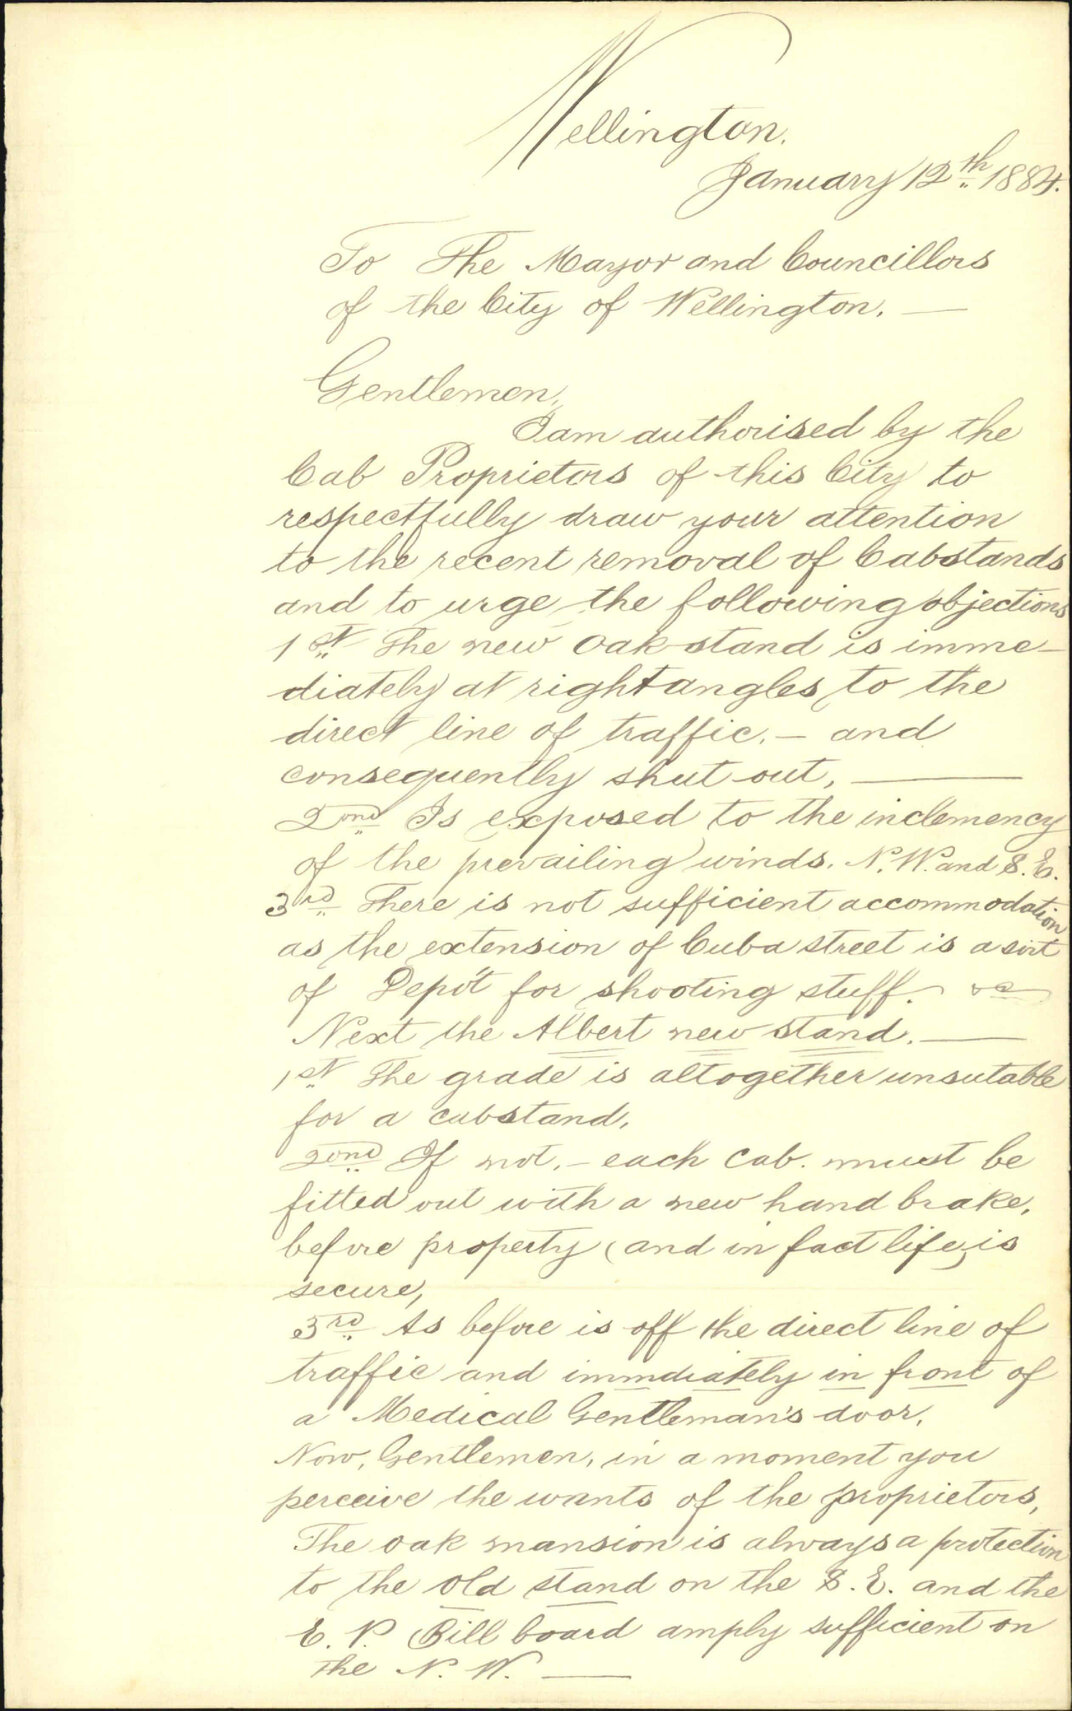 Wellington.
January 12th 1884.
To The Mayor and Councillors
of the City of Wellington. —
Gentlemen,
I am authorised by the
Cab Proprietors of this City to
respectfully draw your attention
to the recent removal of Cabstands
and to urge the following objections
1st The new Oak stand is imme-
diately at right angles to the
direct line of traffic. – and
consequently shut out, —
2ond Is exposed to the inclemency
of the prevailing winds. N.W. and S.E.
3rd There is not sufficient accommodation
as the extension of Cuba street is a sort
of Depôt for shooting stuff.
Next the Albert new stand. —
1st The grade is altogether unsutable
for a cabstand.
2ond If not. – each cab. must be
fitted out with a new hand brake,
before property (and in fact life) is
secure,
3rd As before is off the direct line of
traffic and immdiately in front of
a Medical Gentleman's door.
Now, Gentlemen, in a moment you
perceive the wants of the proprietors,
The oak mansion is always a protection
to the old stand on the S.E. and the
E. P. Bill board amply sufficient on
the N. W. —